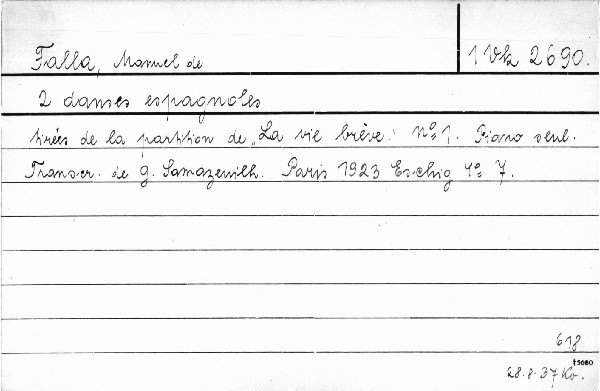 Falla, Manuel de
1 Vk 2690.
2 danses espagnoles
tirées de la partition de „La vie brève." Nº 1. Piano seul.
Transcr. de G. Samazeuilh. Paris 1923 Eschig 4º 7.
618
†5660
28.8.37 Ko.